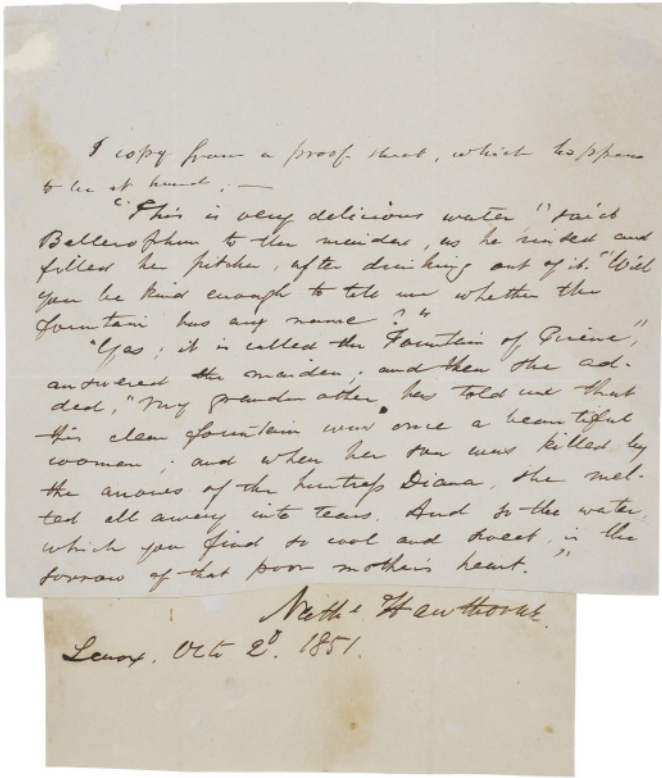 I copy from a proof-sheet, which happens
to be at hand; —
"This is very delicious water," said
Bellerophon to the maiden, as he rinsed and
filled her pitcher, after drinking out of it. "Will
you be kind enough to tell me whether the
fountain has any name?"
"Yes; it is called the Fountain of Pirene,"
answered the maiden; and then she ad-
ded, "My grandmother has told me that
this clear fountain was once a beautiful
woman; and when her son was killed by
the arrows of the huntress Diana, she mel-
ted all away into tears. And so the water,
which you find so cool and sweet, is the
sorrow of that poor mother's heart."
Nathl Hawthorne.
Lenox, Octr 2d. 1851.